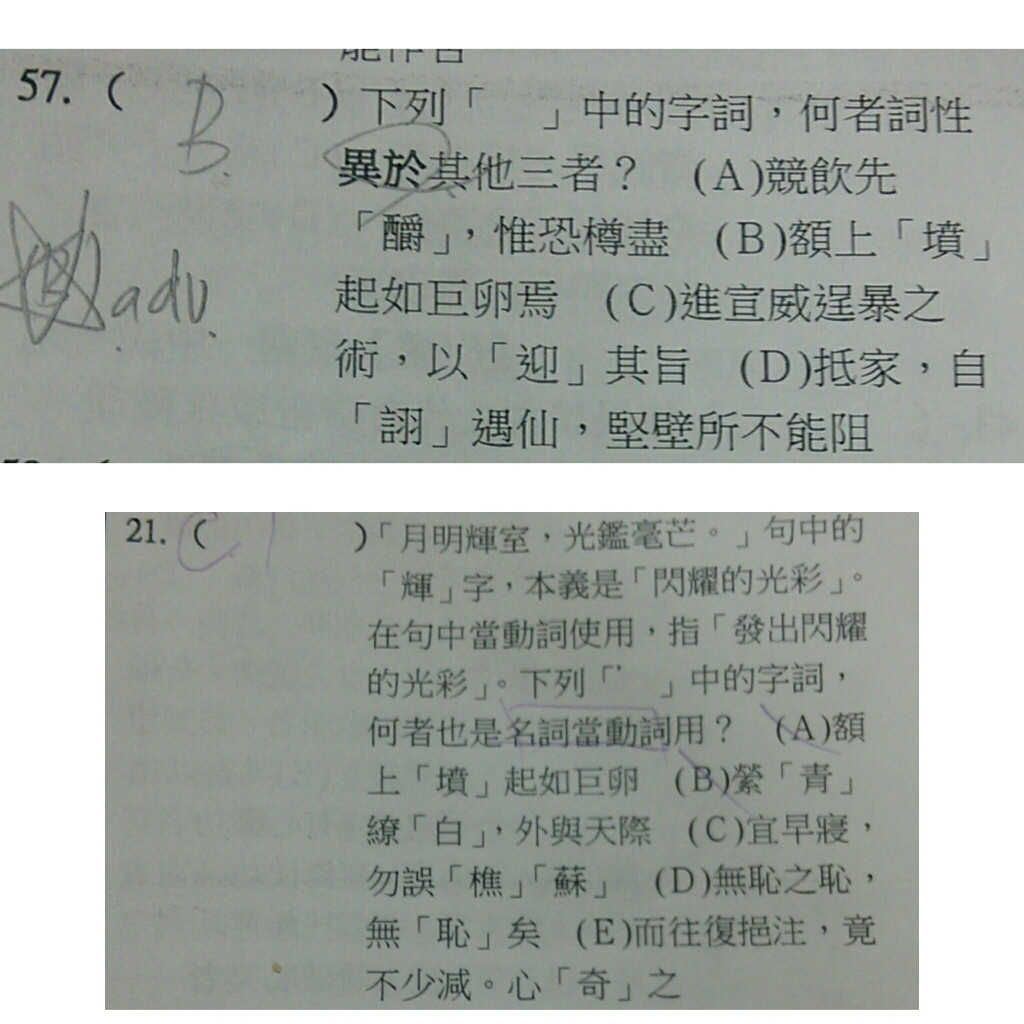 57. ( B. )下列「 」中的字詞,何者詞性
異於其他三者? (A)競飲先
「釂」,惟恐樽盡 (B)額上「墳」
起如巨卵焉 (C)進宣威逞暴之
術,以「迎」其旨 (D)抵家,自
「詡」遇仙,堅壁所不能阻
adv.
21. ( C )「月明輝室,光鑑毫芒。」句中的
「輝」字,本義是「閃耀的光彩」。
在句中當動詞使用,指「發出閃耀
的光彩」。下列「 」中的字詞,
何者也是名詞當動詞用? (A)額
上「墳」起如巨卵 (B)縈「青」
繚「白」,外與天際 (C)宜早寢,
勿誤「樵」「蘇」 (D)無恥之恥,
無「恥」矣 (E)而往復挹注,竟
不少減。心「奇」之